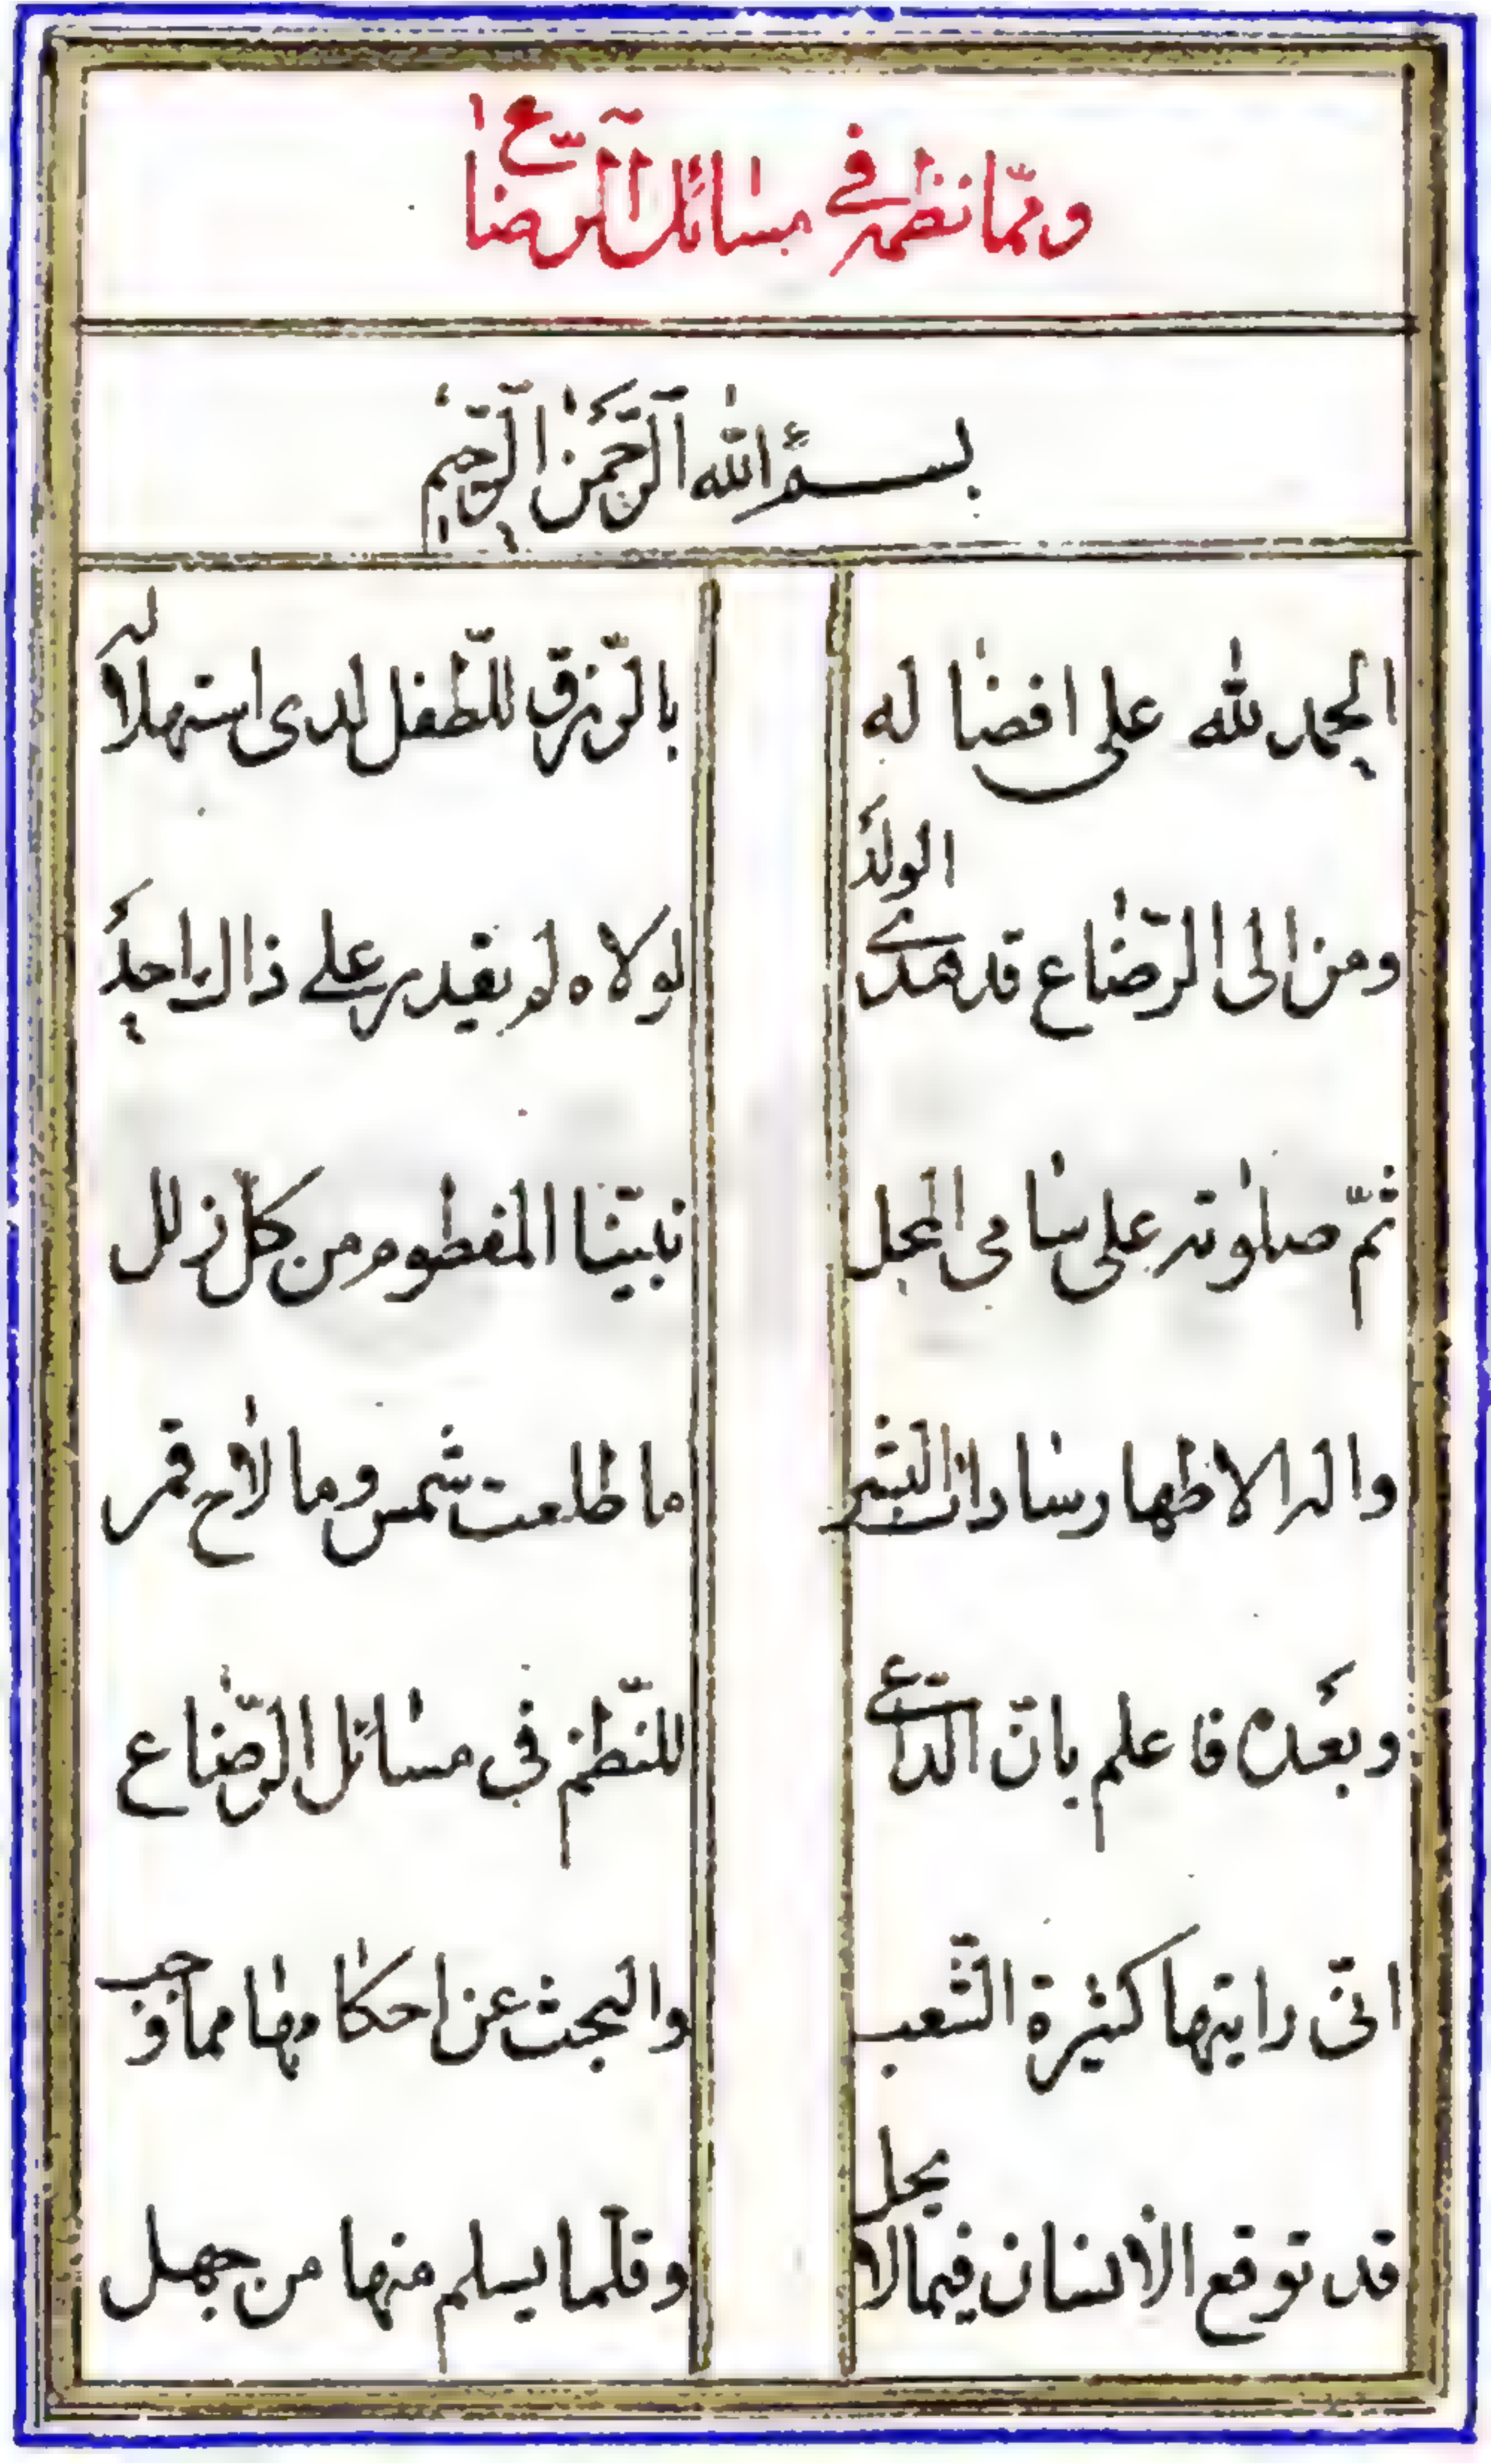 وممّا نظمه في مسائل الرضاع
بسم الله الرَّحمٰن الرَّحيم
الحمد لله على افضاله بالرّزق للطّفل لدى استهلاله
ومن الى الرّضاع قد هدى الولَد لولاه لم يقدر على ذاك احدَ
ثمّ صلوته على سامى المحل نبيّنا المفطوم من كلّ زلل
واله الاطهار سادات البشر ما طلعت شمس وما لاح قمر
وبعَده فاعلم بانّ الدّاعي للنّظم في مسائل الرّضاع
انّى رايتها كثيرة الشّعب والبحث عن احكامها مما وجب
قد توقع الانسان فيما لا يحل وقلّما يسلم منها من جهل